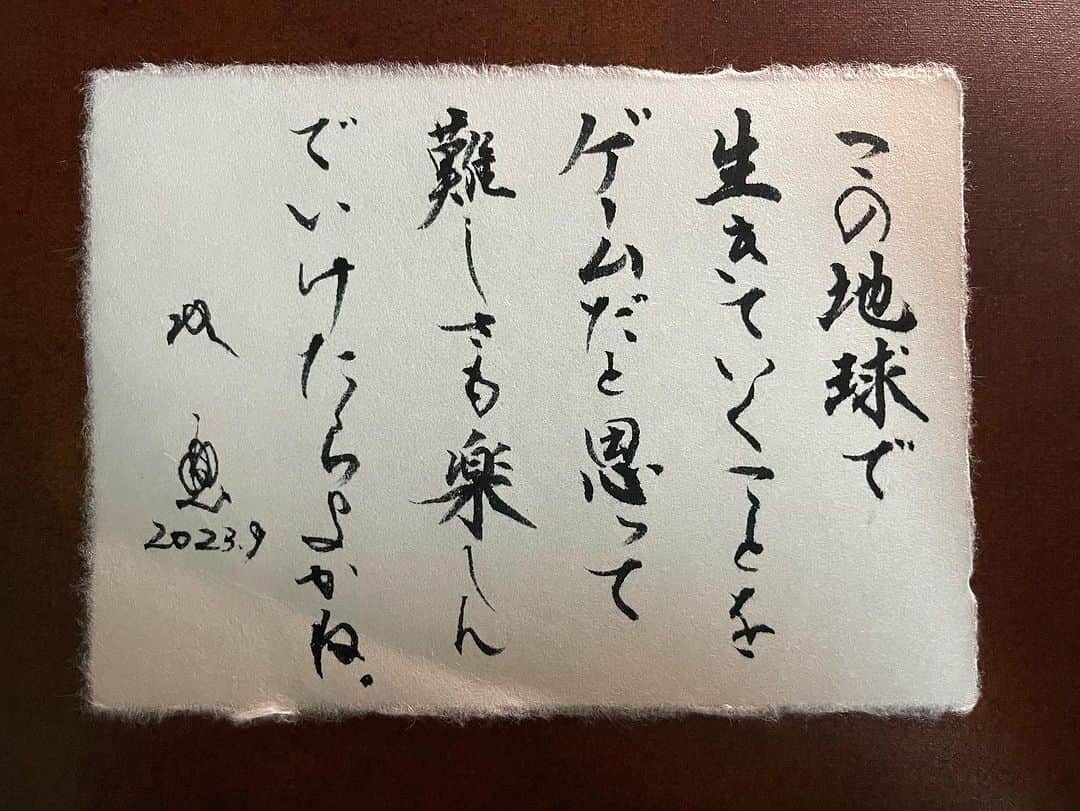 この地球で
生きていくことを
ゲームだと思って
難しさも楽しん
でいけたらよかね。
2023.9